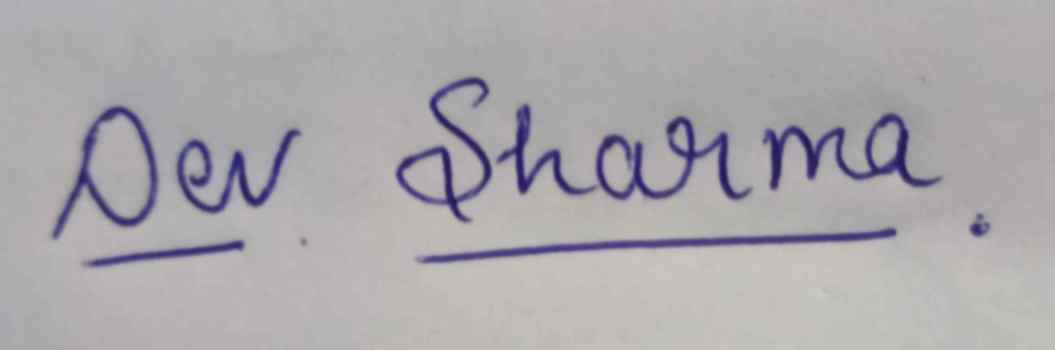 Dev Sharma.